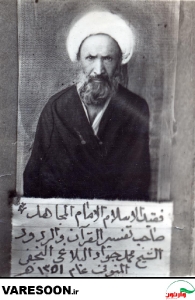 فقيد الاسلام الامام المجاهد
صاحب تفسير القرآن والردود
الشيخ محمد جواد البلاغي النجفي
المتوفى عام ١٣٥١ هـ
WWW.VARESOON.IR
وارثون